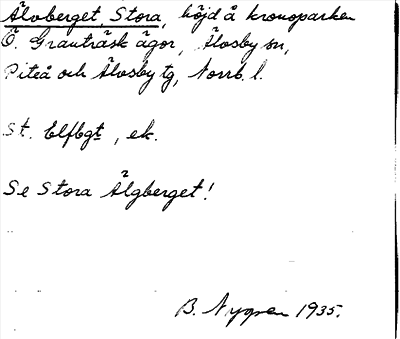 Älvberget, Stora, höjd å kronoparken
Ö. Granträsk ägor, Älvsby sn,
Piteå och Älvsby tg, Norrb. l.
St. Elfbgt, ek.
Se Stora Älgberget!
B. Nygren 1935.